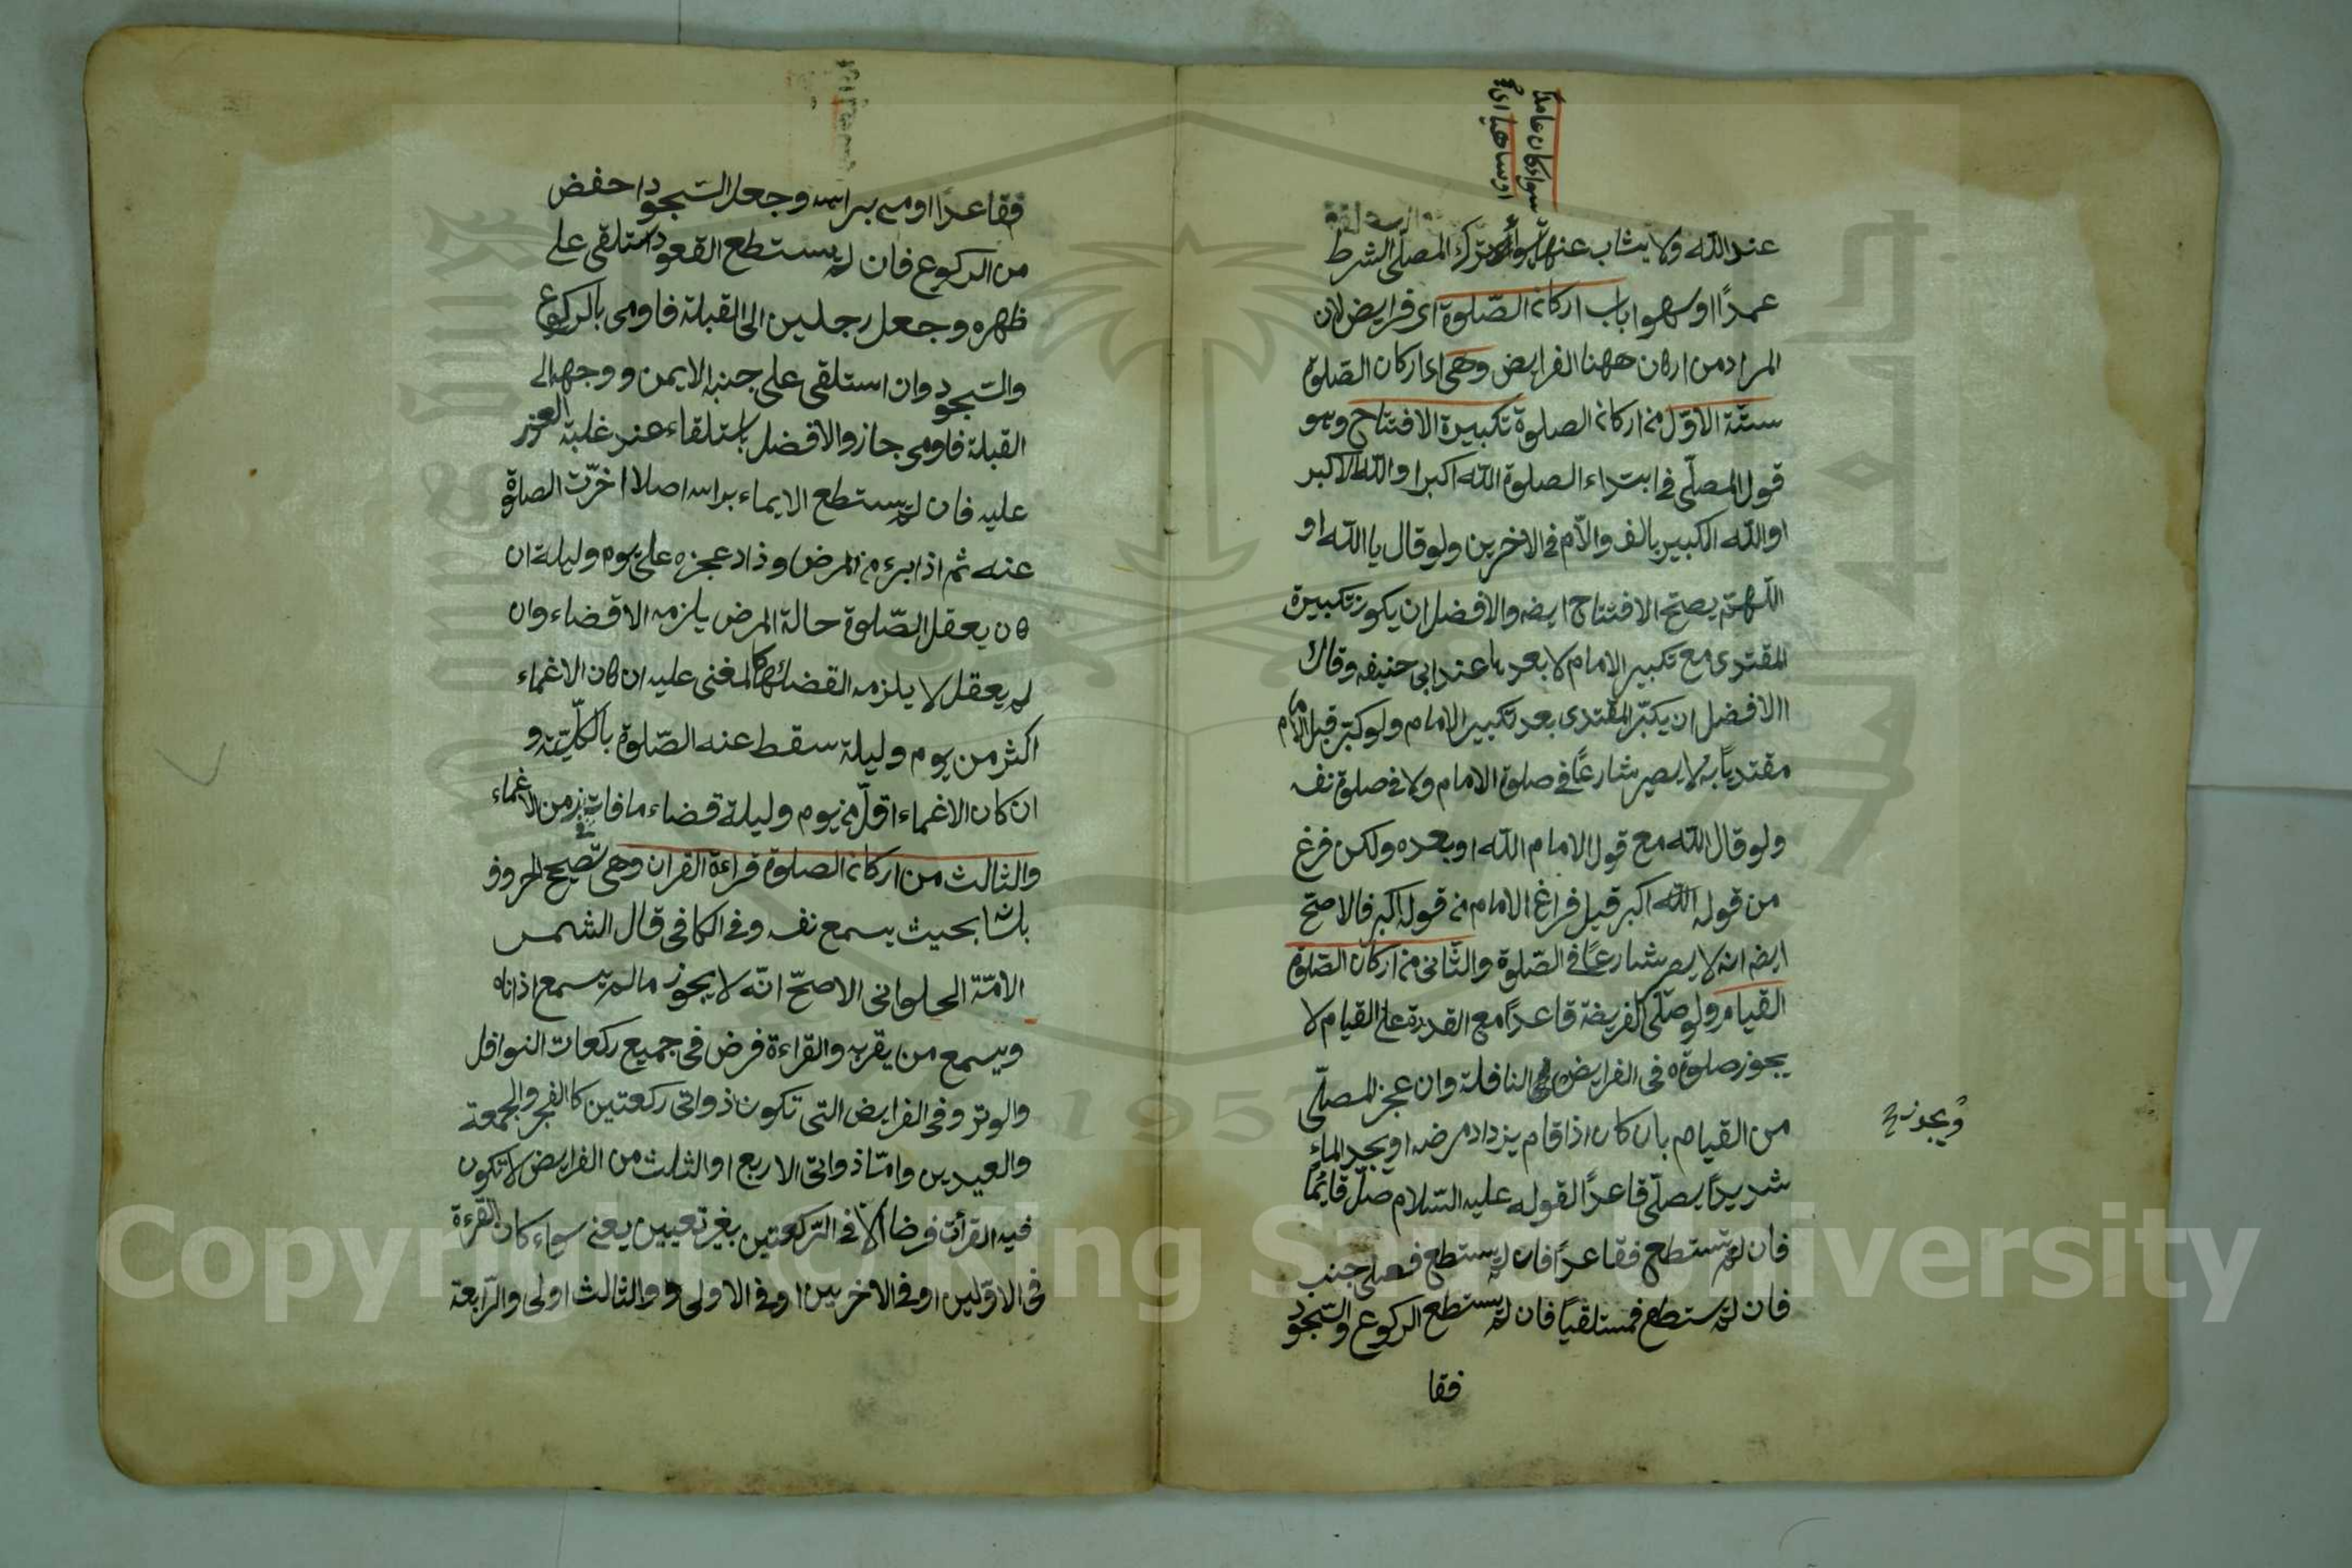 سواء كان عامدا
او ساهيا اى
عند الله ولا يثاب عنها سواء ترك المصلّى الشرط
عمدًا او سهوا باب اركان الصّلوة اى فرايض لان
المراد من اركان ههنا الفرايض وهى اى اركان الصّلوة
ستّة الاوّل من اركان الصلوة تكبيرة الافتتاح وهو
قول المصلّى فى ابتداء الصلوة الله اكبر او الله الاكبر
او الله الكبير بالف والاّم فى الاخرين ولو قال يا الله او
اللّهمّ يصحّ الافتتاح ايضه والافضل ان يكون تكبيرة
المقتدى مع تكبير الامام لا بعدها عند ابى حنيفه وقالا
الافضل ان يكبّر المقتدى بعد تكبير الامام ولو كبّر قبل الامام
مقتديًا به لا يصير شارعًا فى صلوة الامام ولا فى صلوة نفسه
ولو قال الله مع قول الامام الله او بعده ولكن فرغ
من قوله الله اكبر قبل فراغ الامام من قوله اكبر فالاصحّ
ايضه انه لا يصير شارعًا فى الصّلوة والثّانى من اركان الصّلوة
القيام ولو صلّى الفريضة قاعدًا مع القدرة على القيام لا
يجوز صلوته فى الفرايض النافلة وان عجز المصلّى
ويجوز
من القيام بان كان اذا قام يزداد مرضه او يجد الماء
شديدًا يصلّى قاعدًا لقوله عليه السّلام صلّ قائمًا
فان لم تستطع فقاعدًا فان لم يستطع فعلى جنب
فان لم ستطع فمستلقيًا فان لم يستطع الركوع والسّجود
فقا
فقاعدًا اومى براسه وجعل السّجود احفض
من الركوع فان لم يستطع القعود استلقى على
ظهره وجعل رجلين الى القبلة فاومى بالركوع
والسّجود وان استلقى على جنبه الايمن ووجهه الى
القبلة فاومى جاز والافضل باستلقاء عند غلبة العجز
عليه فان لم يستطع الايماء براسه اصلا اخرّت الصلوة
عنه ثم اذا برء من المرض وزاد عجزه على يوم وليلة ان
كان يعقل الصّلوة حالة المرض يلزمه الاقضاء وان
لم يعقل لا يلزمه القضاء كالمغنى عليه ان كان الاغماء
اكثر من يوم وليلة سقط عنه الصّلوة بالكلّيّة و
ان كان الاغماء اقلّ من يوم وليلة قضاء ما فات فى زمن الاغماء
والثالث من اركان الصلوة قراءة القران وهى تصحيح الحروف
بلسانه بحيث يسمع نفسه وفى الكافى قال الشمس
الائمّة الحلوانى الاصحّ انّه لا يجوز ما لم يسمع اذناه
ويسمع من يقربه والقراءة فرض فى جميع ركعات النوافل
والوتر وفى الفرايض التى تكون ذواتى ركعتين كالفجر والجمعة
والعيدين وامّا ذواتى الاربع او الثلث من الفرايض لا تكون
فيه القرأت فرضا الاّ فى الرّكعتين بغير تعيين يعنى سواء كان القرءة
فى الاوّلين او فى الاخريين او فى الاولى و والثالث اولى والرّابعة
1957
Copyright © King Saud University